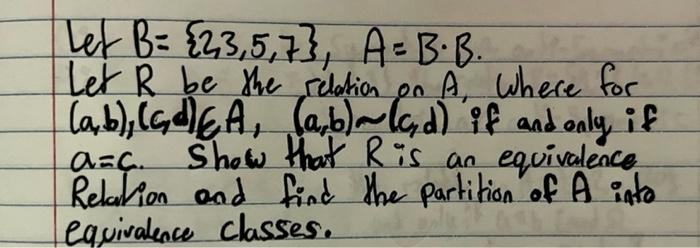 Let B= {2,3,5,7}, A=B·B.
Let R be the relation on A, Where for
(a,b),(c,d)∈A, (a,b)~(c,d) if and only if
a=c. Show that R is an equivalence
Relation and find the partition of A into
equivalence classes.